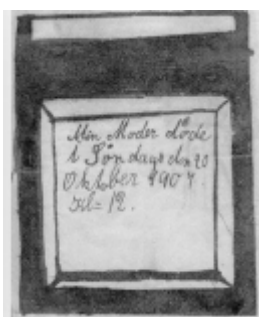 Min Moder döde
t Söndags dn 20
Oktber 1907.
Kl= 12.